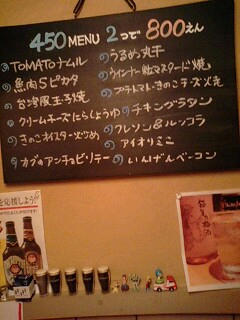 450 MENU 2つで 800えん
TOMATOナムル
魚肉Sピカタ
台湾風玉子焼
クリームチーズにらしょうゆ
きのこオイスター炒め
カブのアンチョビソテー
うるめ丸干
ウインナー粒マスタード焼
プチトマト・きのこチーズ焼
チキングラタン
クレソン&ルッコラ
アイオリミミ
いんげんベーコン
を応援しよう!!